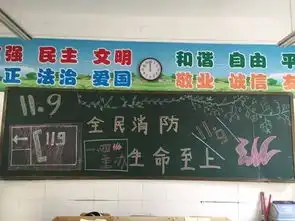 强 民主 文明 和谐 自由 平
正 法治 爱国 敬业 诚信 友
11.9
全民消防
119
119
生命至上